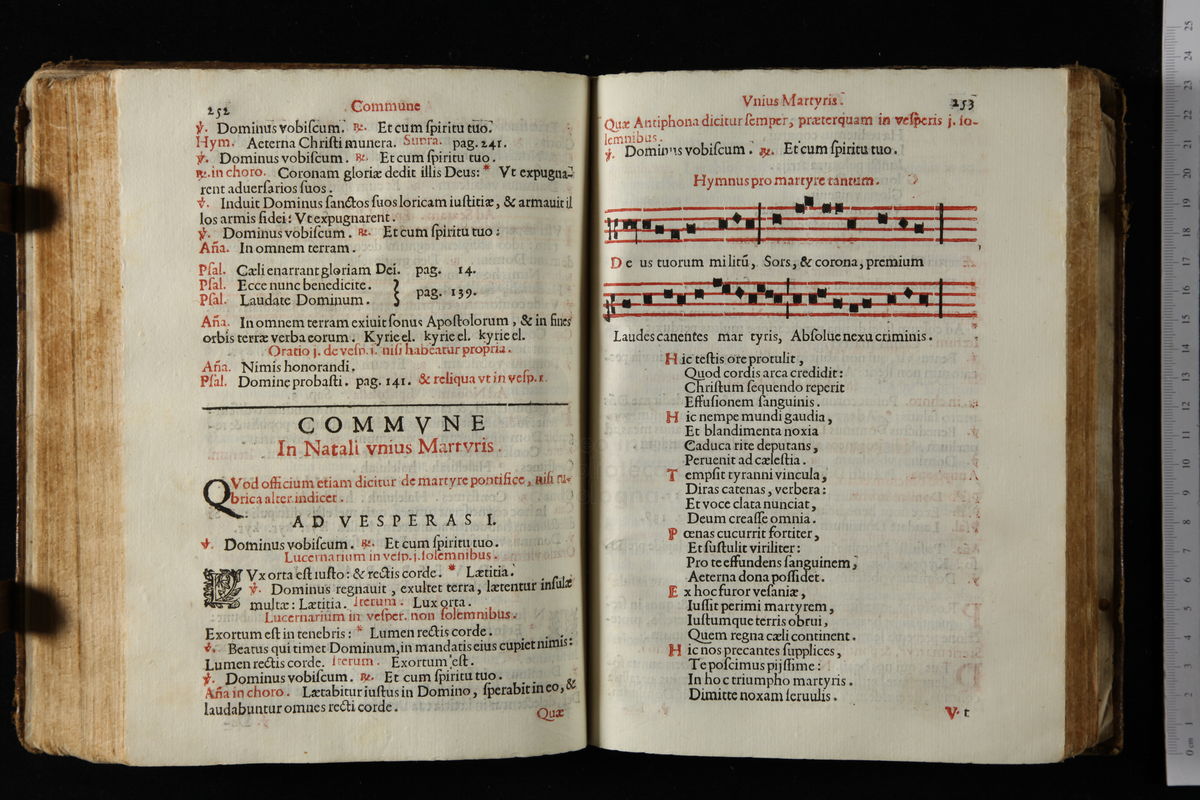 252 Commune
℣. Dominus vobiscum. ℟. Et cum ſpiritu tuo.
Hym. Aeterna Chriſti munera. Supra. pag. 241.
℣. Dominus vobiſcum. ℟. Et cum ſpiritu tuo.
℟. in choro. Coronam gloriæ dedit illis Deus: * Vt expugna-
rent aduerſarios ſuos.
℣. Induit Dominus ſanctos ſuos loricam iuſtitiæ, & armauit il
los armis fidei: Vt expugnarent.
℣. Dominus vobiſcum. ℟. Et cum ſpiritu tuo:
Aña. In omnem terram.
Pſal. Cæli enarrant gloriam Dei. pag. 14.
Pſal. Ecce nunc benedicite.
Pſal. Laudate Dominum. } pag. 139.
Aña. In omnem terram exiuit ſonus Apoſtolorum, & in fines
orbis terræ verba eorum. Kyrie el. kyrie el. kyrie el.
Oratio j. de veſp. i. niſi habeatur propria.
Aña. Nimis honorandi.
Pſal. Domine probaſti. pag. 141. & reliqua vt in veſp. 1.
COMMVNE
In Natali vnius Martyris.
QVod officium etiam dicitur de martyre pontifice, niſi ru-
brica aliter indicet.
AD VESPERAS I.
℣. Dominus vobiſcum. ℟. Et cum ſpiritu tuo.
Lucernarium in veſp. j. ſolemnibus.
LVx orta eſt iuſto: & rectis corde. * Lætitia.
℣. Dominus regnauit, exultet terra, lætentur inſulæ
multæ: Lætitia. Iterum. Lux orta.
Lucernarium in veſper. non ſolemnibus.
Exortum eſt in tenebris: * Lumen rectis corde.
℣. Beatus qui timet Dominum, in mandatis eius cupiet nimis:
Lumen rectis corde. Iterum. Exortum eſt.
℣. Dominus vobiſcum. ℟. Et cum ſpiritu tuo.
Aña in choro. Lætabitur iuſtus in Domino, ſperabit in eo, &
laudabuntur omnes recti corde.
Quæ
Vnius Martyris. 253
Quæ Antiphona dicitur ſemper, præterquam in veſperis j. ſo-
lemnibus.
℣. Dominus vobiſcum. ℟. Et cum ſpiritu tuo.
Hymnus pro martyre tantum.
De us tuorum militū, Sors, & corona, premium
Laudes canentes mar tyris, Abſolue nexu criminis.
Hic teſtis ore protulit,
Quod cordis arca credidit:
Chriſtum ſequendo reperit
Effuſionem ſanguinis.
Hic nempe mundi gaudia,
Et blandimenta noxia
Caduca rite deputans,
Peruenit ad cæleſtia.
Tempſit tyranni vincula,
Diras catenas, verbera:
Et voce clara nunciat,
Deum creaſſe omnia.
Pœnas cucurrit fortiter,
Et ſuſtulit viriliter:
Pro te effundens ſanguinem,
Aeterna dona poſſidet.
Ex hoc furor veſaniæ,
Iuſſit perimi martyrem,
Iuſtumque terris obrui,
Quem regna cæli continent.
Hic nos precantes ſupplices,
Te poſcimus pijſſime:
In hoc triumpho martyris.
Dimitte noxam ſeruulis.
V. 1